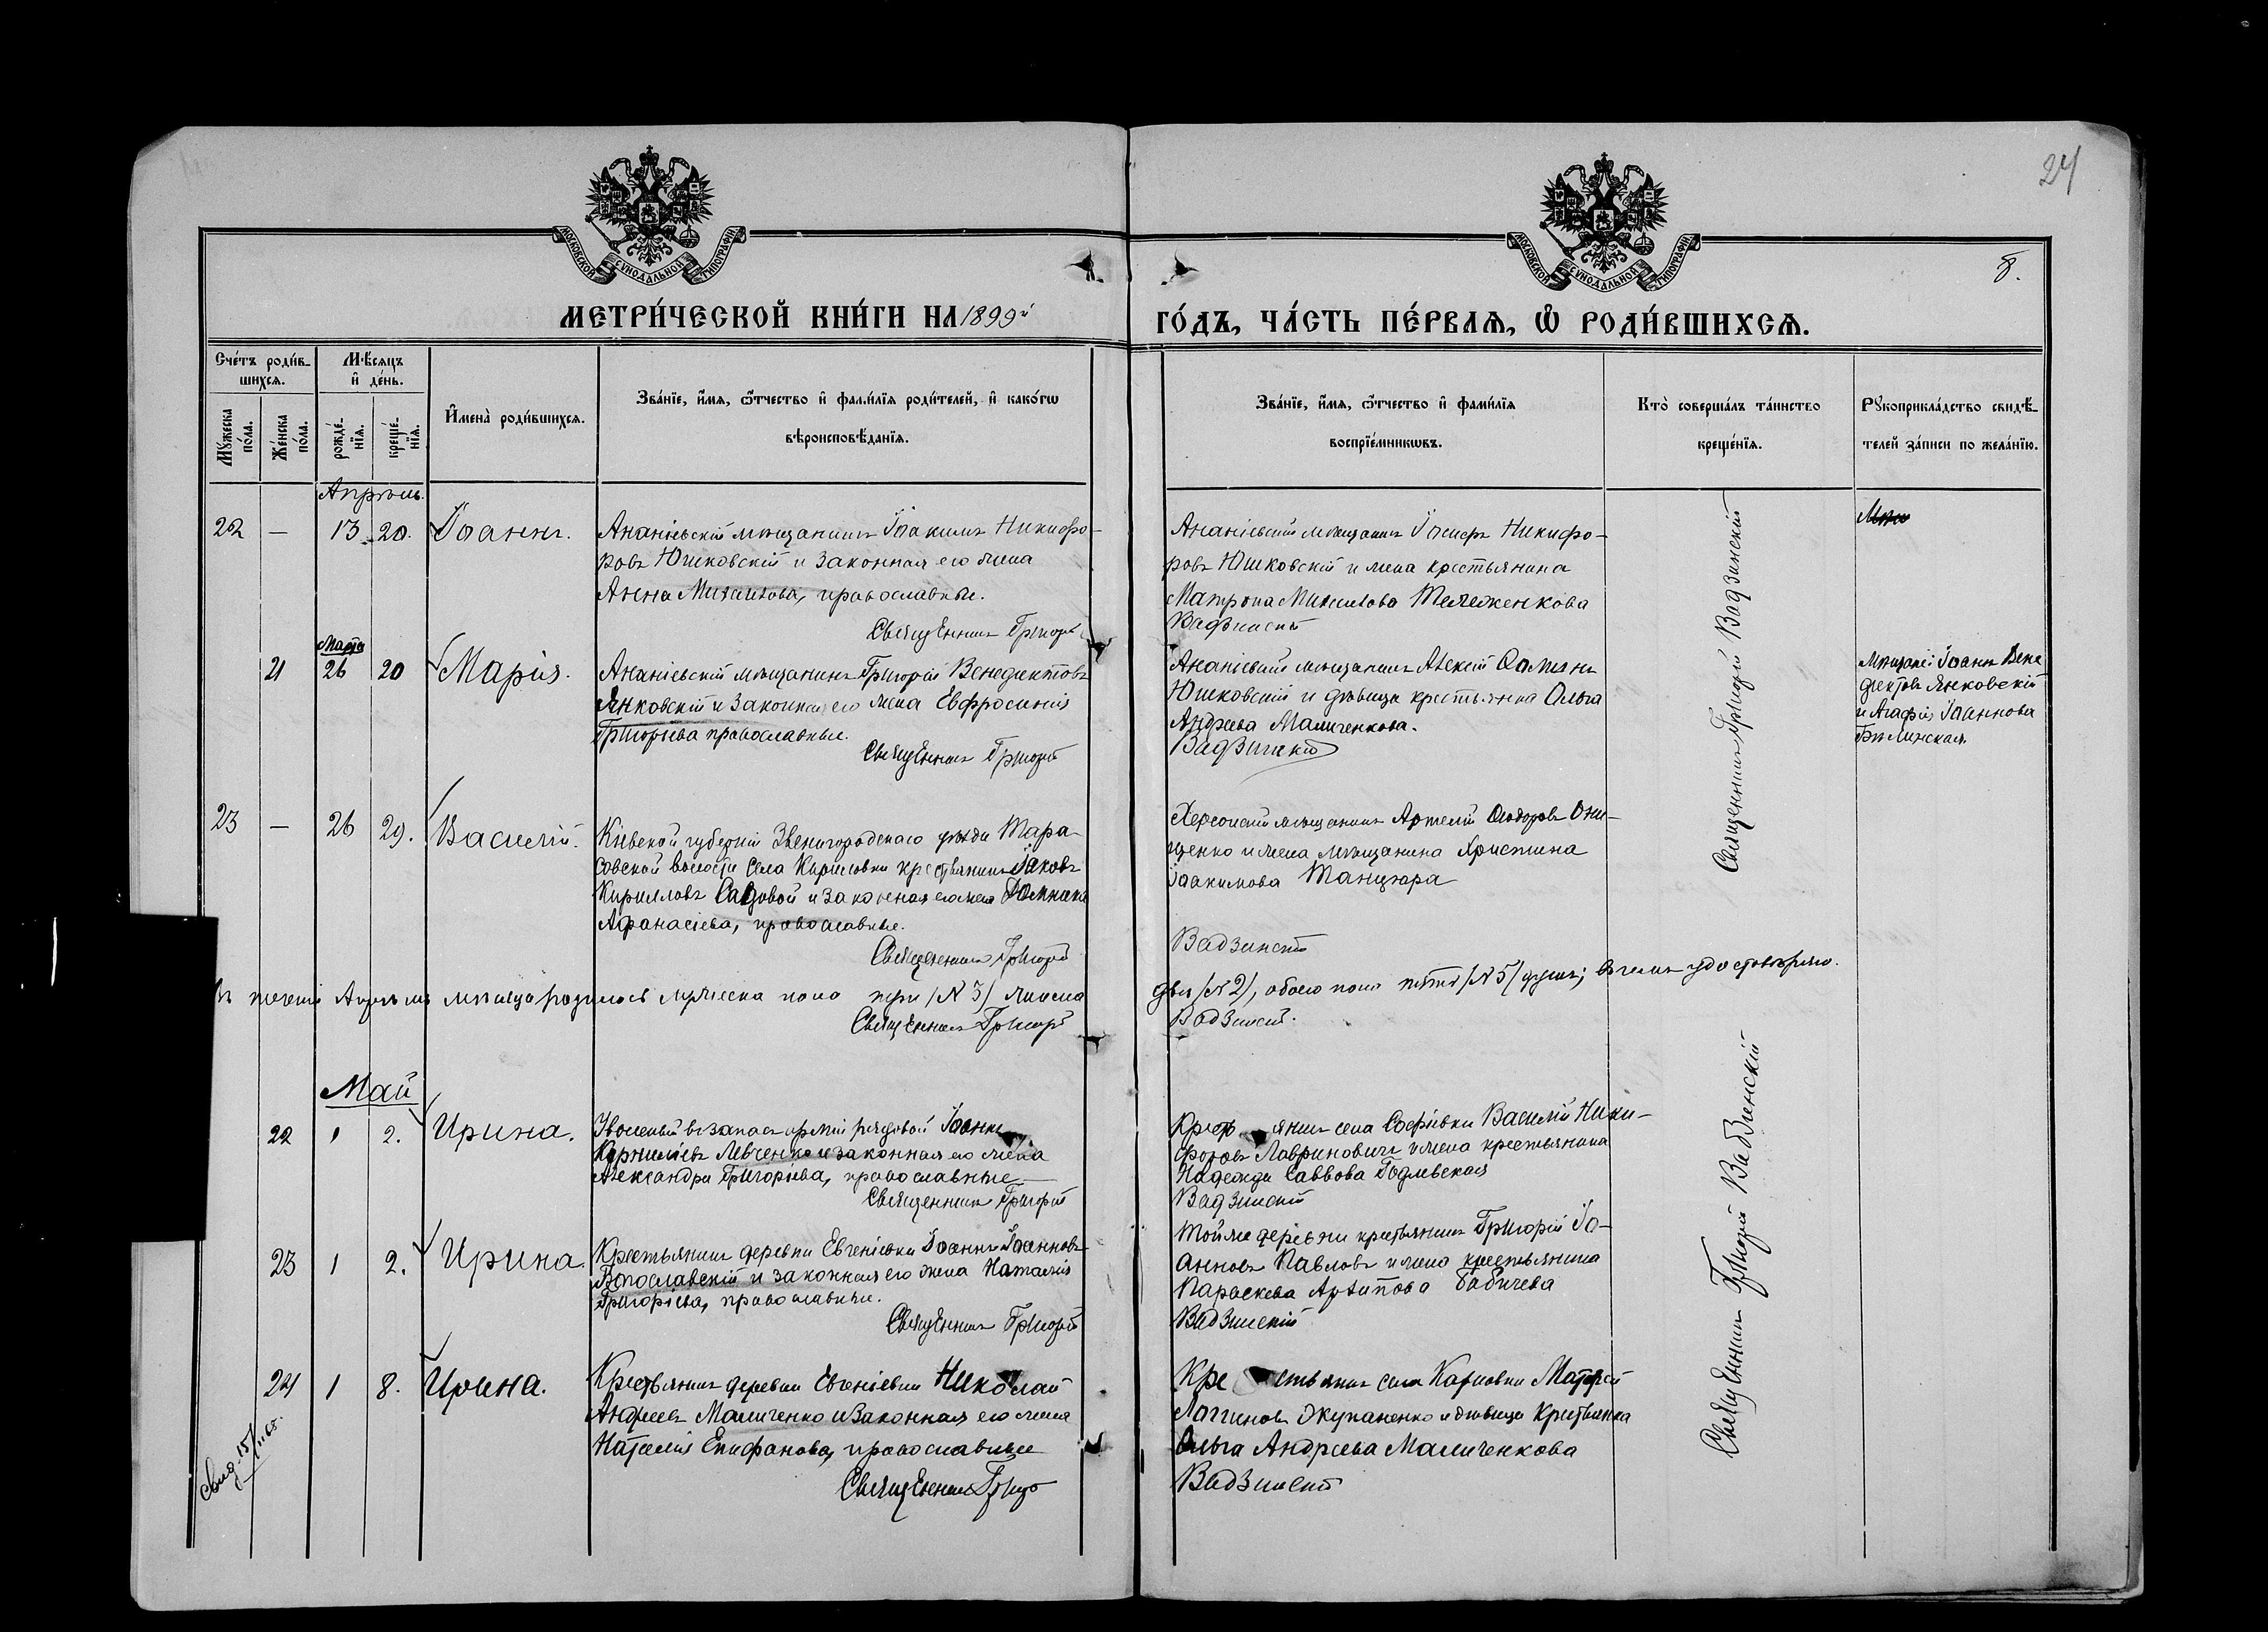 24
МОСКОВСКОЙ СѴНОДАЛЬНОЙ ТИПОГРАФІИ
МОСКОВСКОЙ СѴНОДАЛЬНОЙ ТИПОГРАФІИ
8.
МЕТРИ́ЧЕСКОЙ КНИ́ГИ НА 1899й ГО́ДЪ, ЧА́СТЬ ПЕ́РВАЯ, Ѡ РОДИ́ВШИХСЯ.
Сче́тъ роди́в-
шихся.
Мѣ́сяцъ
и҆ де́нь.
Му́жеска
по́ла.
Же́нска
по́ла.
рожде́-
нїя.
креще́-
нїя.
И҆мена̀ роди́вшихся.
Зва́нїе, и҆́мя, ѻ҆́тчество и҆ фами́лїя роди́телей, и҆ како́гѡ
вѣроисповѣ́данїя.
Зва́нїе, и҆́мя, ѻ҆́тчество и҆ фами́лїя
воспрїе́мникѡвъ.
Кто̀ соверша́лъ та́инство
креще́нїя.
Рꙋкоприкла́дство свидѣ́-
телей за́писи по жела́нїю.
Апрѣль.
22 — 13 20. Іоаннъ.
Ананіевскій мѣщанинъ Іоакимъ Никифо-
ровъ Юшковскій и законная его жена
Анна Михаилова, православные.
Священникъ Григорій
Ананіевскій мѣщанинъ Іосифъ Никифо-
ровъ Юшковскій и жена крестьянина
Матрона Михаилова
Вадзинскій
Священникъ Григорій Вадзинскій
Марта
21 26 20 Марія.
Ананіевскій мѣщанинъ Григорій Венедиктовъ
Янковскій и законная его жена Евфросинія
Григорьева православные.
Священникъ Григорій
Ананіевскій мѣщанинъ Алексій
Юшковскій и дѣвица крестьянка Ольга
Андреева Маличенкова.
Вадзинскій
Мѣщане: Іоаннъ Вене
диктовъ Янковскій
и Агафія Іоаннова
Бѣлинская.
23 — 26 29. Василій.
Кіевской губерніи Звенигородскаго уѣзда Тара-
совской волости села Кириловки крестьянинъ Іаковъ
Кирилловъ Садовой и законная его жена Домника
Афанасіева, православные.
Священникъ Григорій
Херсонскій мѣщанинъ Артемій Ѳеодоровъ Они-
щенко и жена мѣщанина Христина
Іоакимова Танцюра
Вадзинскій
Въ теченіи Апрѣля мѣсяца родилось мужеска пола три /№ 3/ женска
двѣ /№ 2/, обоего пола пять /№ 5/ душъ; въ чемъ удостовѣряю.
Священникъ Григорій
Вадзинскій.
Май
22 1 2. Ирина.
Уволенный въ запасъ арміи рядовой Іоаннъ
Корниліевъ Левченко и законная его жена
Александра Григоріева, православные
Священникъ Григорій
Крестьянинъ села Софіевки Василій Ники-
форовъ Лавриновичъ и жена крестьянина
Надежда Саввова
Вадзинскій
Священникъ Григорій Вадзинскій
23 1 2. Ирина.
Крестьянинъ деревни Евгеніевки Іоаннъ Іоанновъ
Богославскій и законная его жена Наталія
Григоріева, православные.
Священникъ Григорій
Той же деревни крестьянинъ Григорій Іо-
анновъ Павловъ и жена крестьянина
Параскева Архипова Бабичева
Вадзинскій
24 1 8. Ирина.
Крестьянинъ деревни Евгеніевки Николай
Андреевъ Маличенко и законная его жена
Наталія Епифанова, православные
Священникъ Григо
Крестьянинъ села Карповки Матфей
Логгиновъ и дѣвица Крестьянка
Ольга Андреева Маличенкова
Вадзинскій